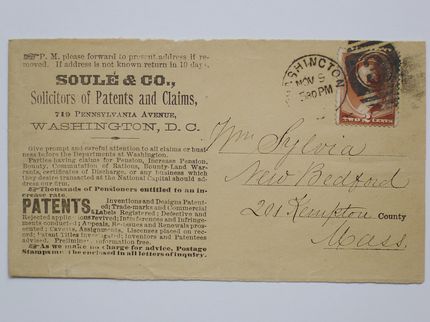 ☞P. M. please forward to present address if re-
moved. If address is not known return in 10 days.
SOULÉ & CO.,
Solicitors of Patents and Claims,
719 PENNSYLVANIA AVENUE,
WASHINGTON, D. C.
Give prompt and careful attention to all claims or busi-
ness before the Departments at Washington.
Parties having claims for Pension, Increase Pension,
Bounty, Commutation of Rations, Bounty Land War-
rants, certificates of Discharge, or any business which
they desire transacted at the National Capital should ad-
dress our firm.
☞Thousands of Pensioners entitled to an in-
crease rate.
PATENTS. Inventions and Designs Patent-
ed; Trade-marks and Commercial
Labels Registered; Defective and
Rejected applications revived; Interferences and Infringe-
ments conducted; Appeals, Re-issues and Renewals pros-
ecuted; Caveats, Assignments, Licenses placed on rec-
ord; Patent Titles investigated; Inventors and Patentees
advised. Preliminary information free.
☞As we make no charge for advice, Postage
Stamps must be enclosed in all letters of inquiry.
WASHINGTON
NOV 5
530PM
TWO 2 CENTS
Wm Sylvia
New Bedford
201 Kempton County
Mass.